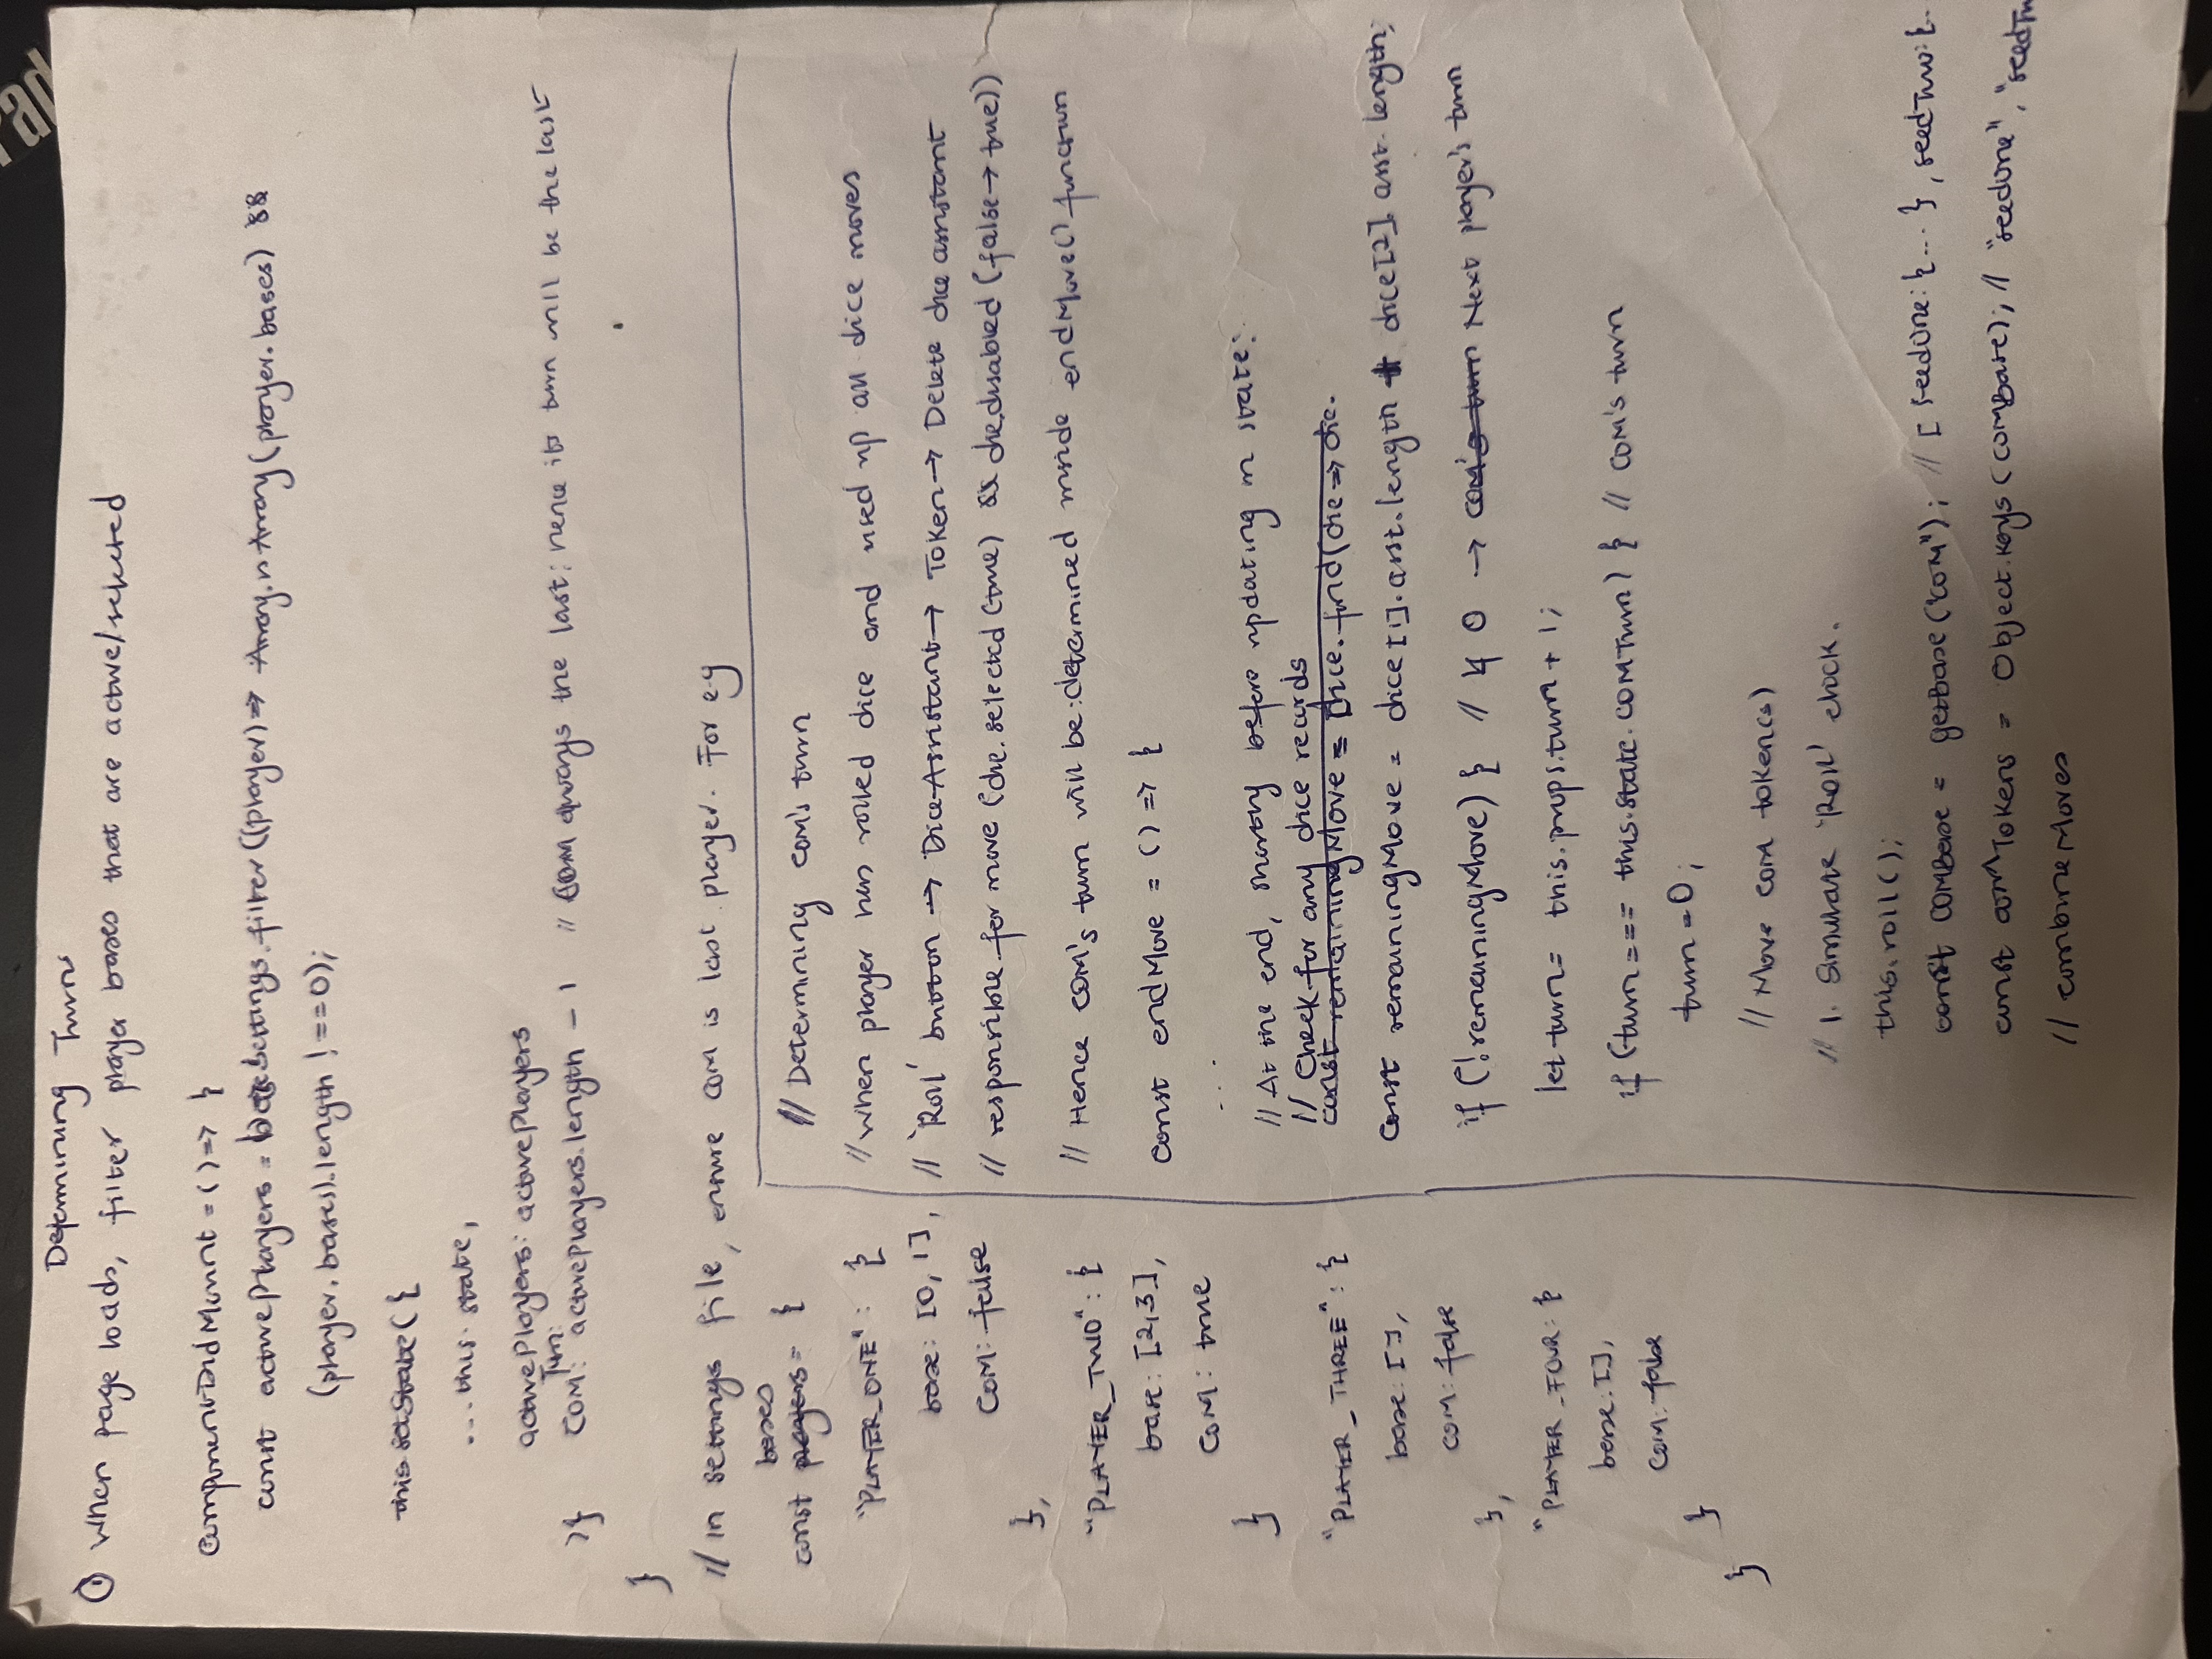 Determining Turns
① When page loads, filter player bases that are active/selected
componentDidMount = () => {
const activePlayers = baseSettings.filter((player) => Array.isArray(player.bases) &&
(player.bases).length !==0);
this.setState({
...this.state,
activePlayers: activePlayers
Turn:
)}
COM: activePlayers.length - 1 // COM always the last; hence its turn will be the last
}
// In settings file, ensure COM is last player. For e.g
bases
const players = {
"PLAYER_ONE": {
base: [0, 1],
COM: false
},
"PLAYER_TWO": {
base: [2,3],
COM: true
}
"PLAYER_THREE": {
base: [],
COM: false
},
"PLAYER_FOUR: {
base: [],
COM: false
}
}
// Determining COM's turn
// When player has rolled dice and used up all dice moves
// 'Roll' button → Dice Assistant → Token → Delete dice assistant
// responsible for move (die.selected (true) && die.disabled (false → true))
// Hence COM's turn will be determined inside endMove() function
const endMove = () => {
...
// At the end, shortly before updating in state:
// Check for any dice records
const remainingMove = dice.find(die => die.
const remainingMove = dice[1].asst.length + dice[2].asst.length;
if (!remainingMove) { // if 0 → COM's turn Next player's turn
let turn = this.props.turn + 1;
if (turn === this.state.COMTurn) { // COM's turn
turn = 0;
// Move COM token(s)
// 1. Simulate 'Roll' click.
this.roll();
const COMBase = getBase("COM"); // [ seedOne: {... }, seedTwo: {..
const COMTokens = Object.keys(COMBase); // "seedOne", "seedTw
// combineMoves